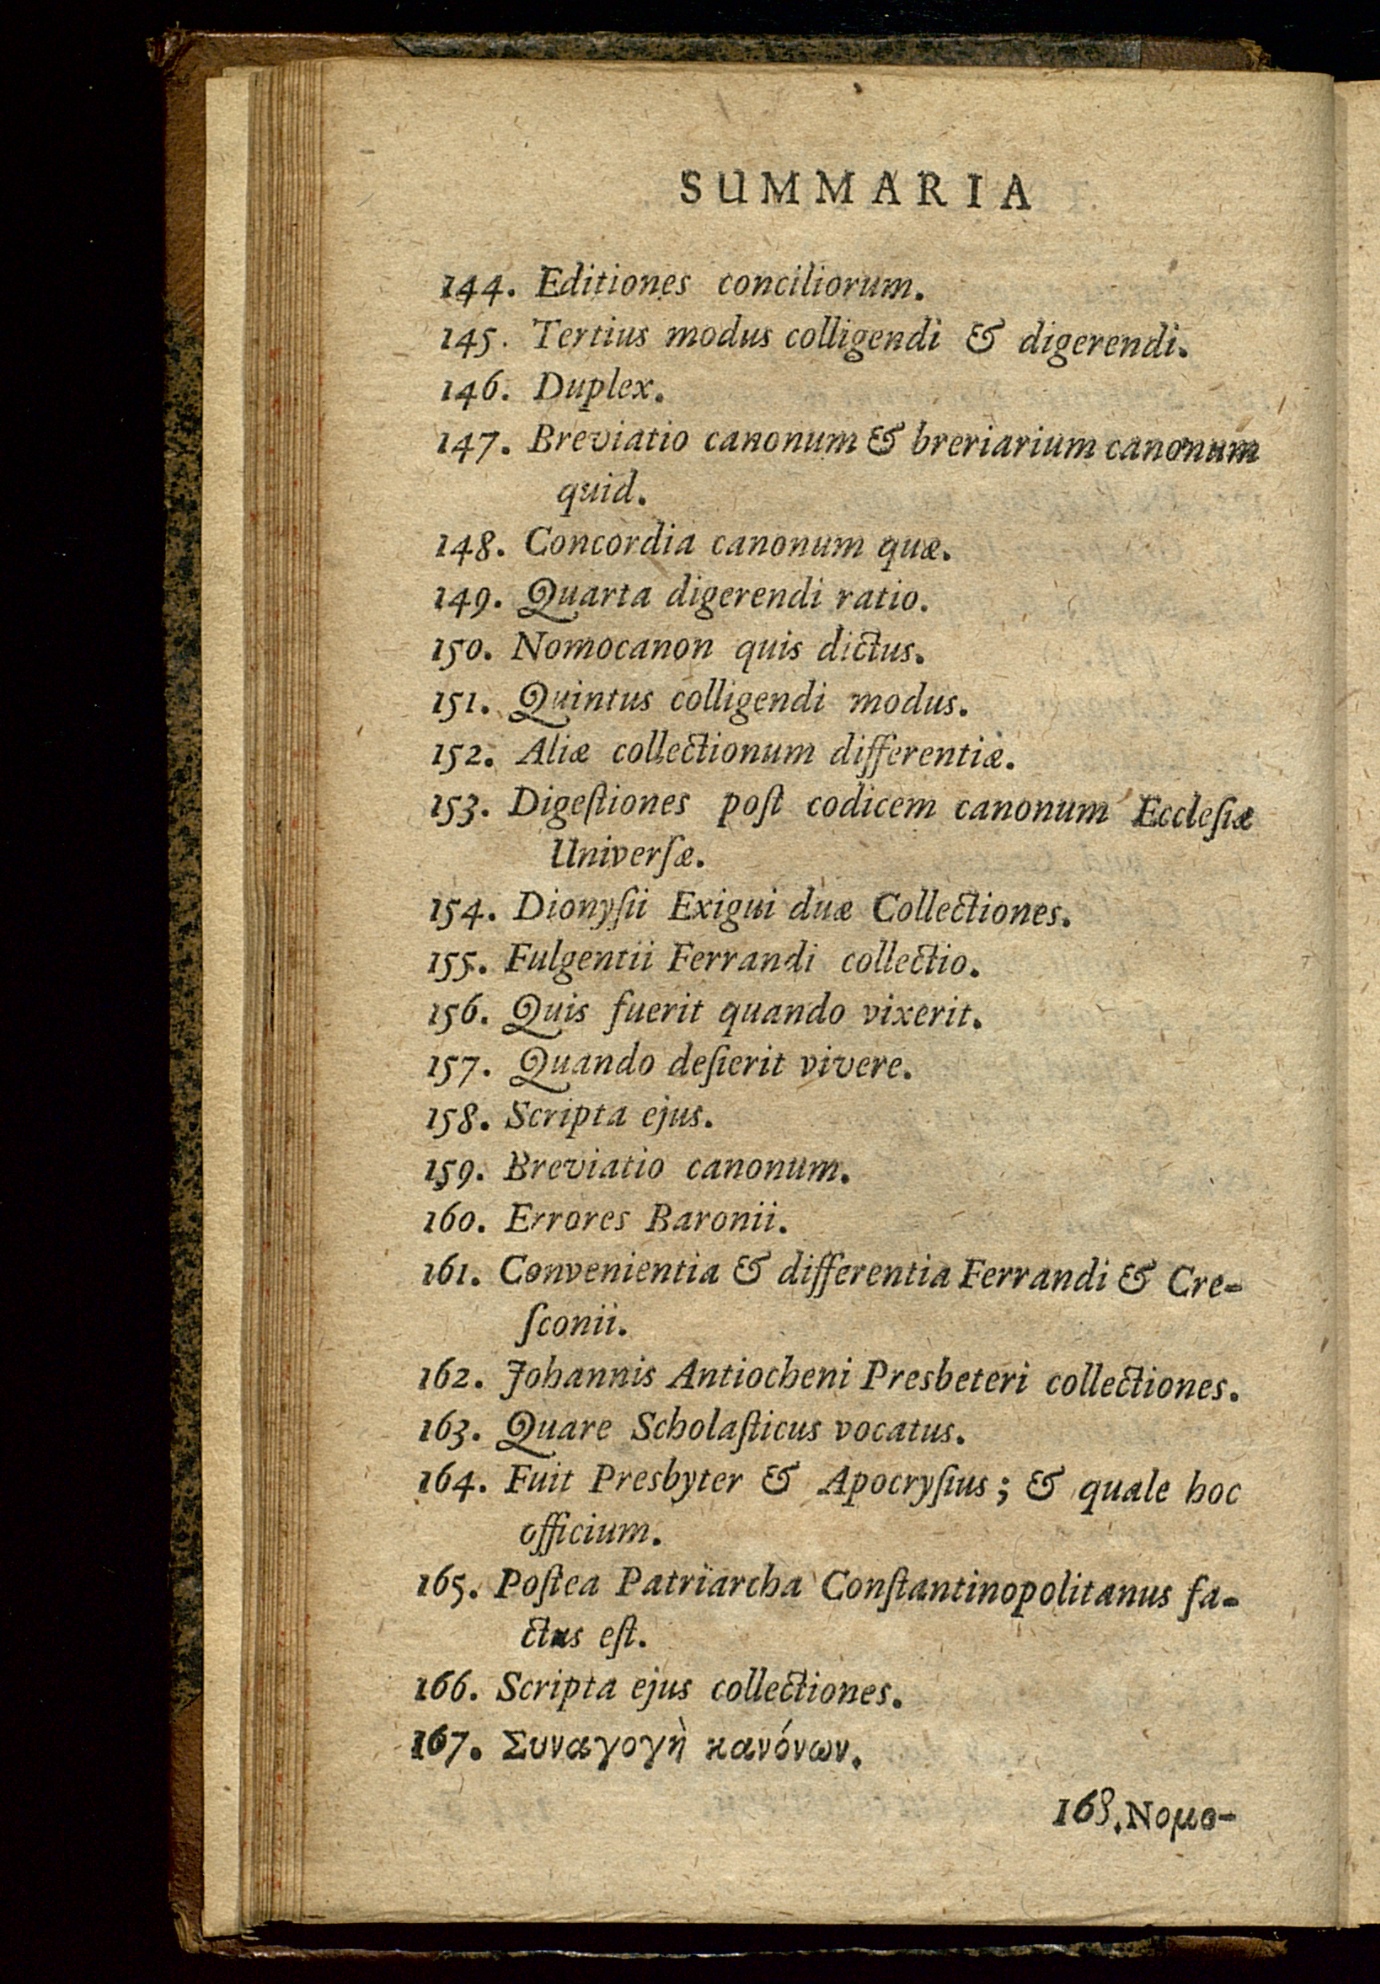 SUMMARIA
144. Editiones conciliorum.
145. Tertius modus colligendi & digerendi.
146. Duplex.
147. Breviatio canonum & breriarium canonum
quid.
148. Concordia canonum quæ.
149. Quarta digerendi ratio.
150. Nomocanon quis dictus.
151. Quintus colligendi modus.
152. Aliæ collectionum differentiæ.
153. Digeſtiones poſt codicem canonum Eccleſiæ
Univerſæ.
154. Dionyſii Exigui duæ Collectiones.
155. Fulgentii Ferrandi collectio.
156. Quis fuerit quando vixerit.
157. Quando deſierit vivere.
158. Scripta ejus.
159. Breviatio canonum.
160. Errores Baronii.
161. Convenientia & differentia Ferrandi & Cre-
ſconii.
162. Johannis Antiocheni Presbeteri collectiones.
163. Quare Scholaſticus vocatus.
164. Fuit Presbyter & Apocryſius; & quale hoc
officium.
165. Poſtea Patriarcha Conſtantinopolitanus fa-
ctus eſt.
166. Scripta ejus collectiones.
167. Συναγογὴ κανόνων.
168. Νομο-